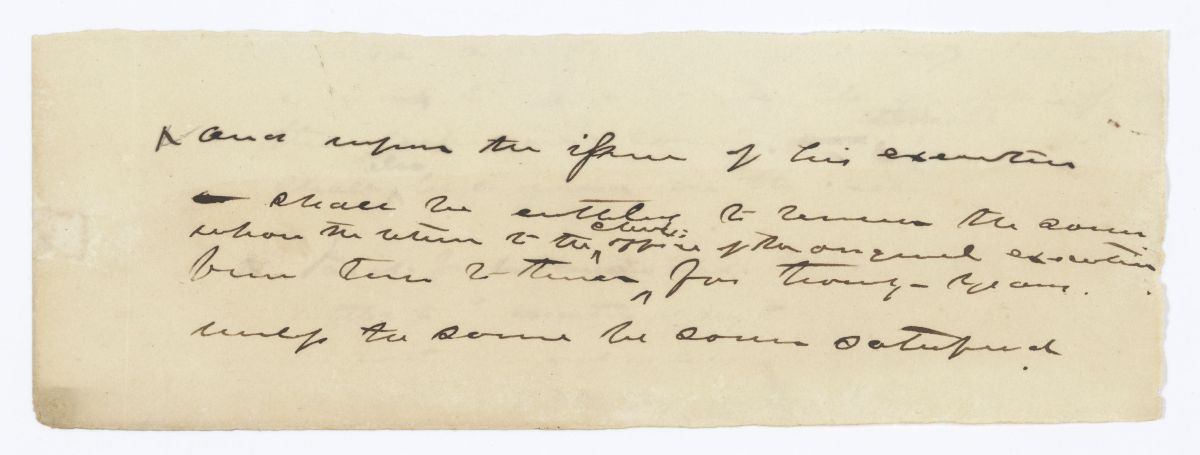 X and upon the issue of his execution
shall be entitled to renew the same
upon the return to the ^ clerks office of the original execution
from time to time ^ for twenty-years.
unless the same be sooner satisfied.